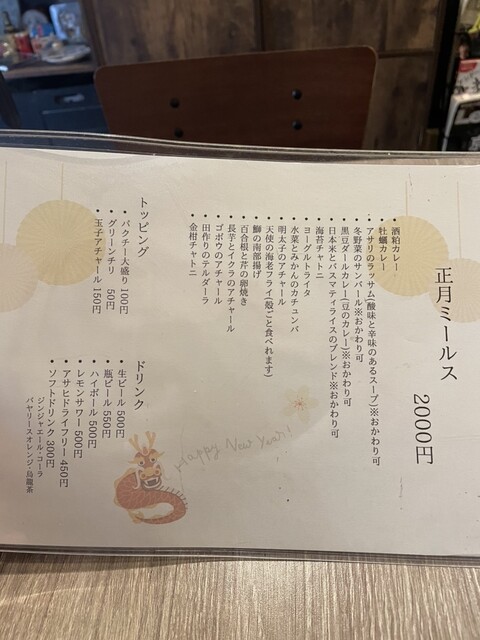 正月ミールス 2000円
• 酒粕カレー
• 牡蠣カレー
• アサリのラッサム(酸味と辛味のあるスープ)※おかわり可
• 冬野菜のサンバール※おかわり可
• 黒豆ダールカレー(豆のカレー)※おかわり可
• 日本米とバスマティライスのブレンド※おかわり可
• 海苔チャトニ
• ヨーグルトライタ
• 水菜とみかんのカチュンバ
• 明太子のアチャール
• 天使の海老フライ(殻ごと食べれます)
• 鰤の南部揚げ
• 百合根と芹の卵焼き
• 長芋とイクラのアチャール
• ゴボウのアチャール
• 田作りのテルダーラ
• 金柑チャトニ
トッピング
• パクチー大盛り 100円
• グリーンチリ 50円
• 玉子アチャール 150円
ドリンク
• 生ビール 500円
• 瓶ビール 550円
• ハイボール 500円
• レモンサワー 500円
• アサヒドライフリー 450円
• ソフトドリンク 300円
ジンジャエール・コーラ
バヤリースオレンジ・烏龍茶
Happy New Year!